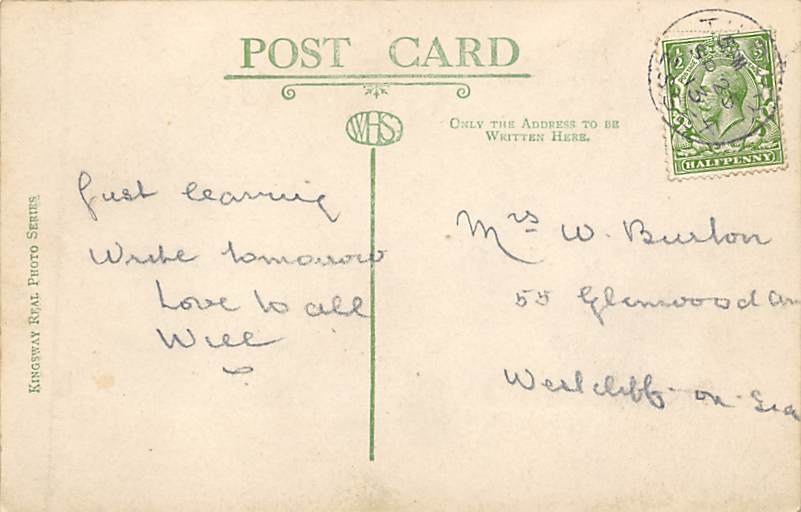 POST CARD
WHS
ONLY THE ADDRESS TO BE
WRITTEN HERE.
HALFPENNY
KINGSWAY REAL PHOTO SERIES
Just leaving
Write tomorrow
Love to all
Will
Mrs W. Burton
55 Glenwood Av
Westcliff-on-Sea